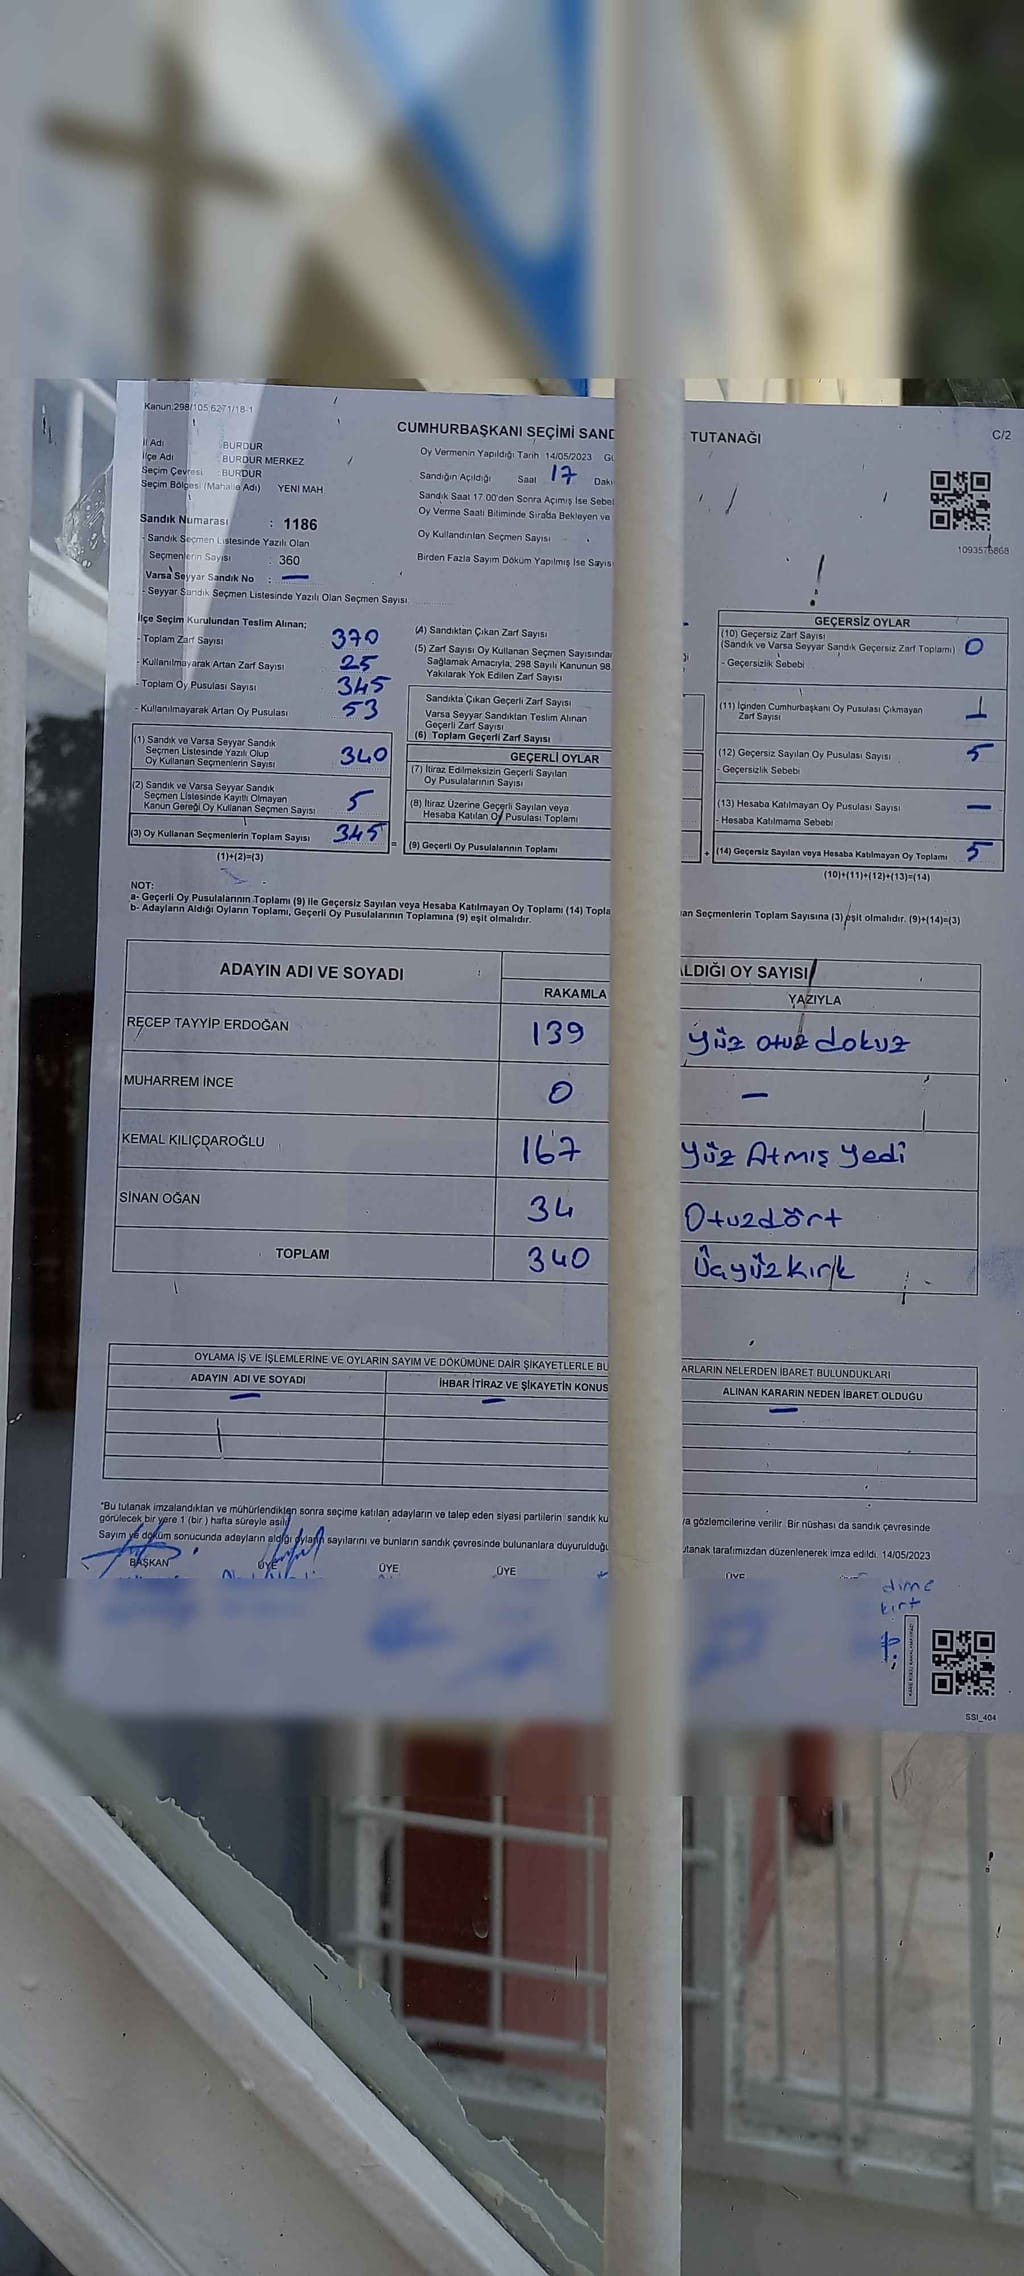 Kanun.298/105,6271/18-1
C/2
CUMHURBAŞKANI SEÇİMİ SAND TUTANAĞI
İl Adı : BURDUR
İlçe Adı BURDUR MERKEZ
Seçim Çevresi : BURDUR
Seçim Bölgesi (Mahalle Adı) YENİ MAH
Oy Vermenin Yapıldığı Tarih 14/05/2023
Sandığın Açıldığı Saat 17
Sandık Saat 17 00'den Sonra Açımış İse
Oy Verme Saati Bitiminde Sırada Bekleyen ve
Sandık Numarası : 1186
- Sandık Seçmen Listesinde Yazılı Olan
Seçmenlerin Sayısı : 360
Oy Kullandırılan Seçmen Sayısı
Birden Fazla Sayım Döküm Yapılmış İse
Varsa Seyyar Sandık No : —
- Seyyar Sandık Seçmen Listesinde Yazılı Olan Seçmen Sayısı
İlçe Seçim Kurulundan Teslim Alınan;
- Toplam Zarf Sayısı 370
- Kullanılmayarak Artan Zarf Sayısı 25
- Toplam Oy Pusulası Sayısı 345
- Kullanılmayarak Artan Oy Pusulası 53
(1) Sandık ve Varsa Seyyar Sandık
Seçmen Listesinde Yazılı Olup
Oy Kullanan Seçmenlerin Sayısı 340
(2) Sandık ve Varsa Seyyar Sandık
Seçmen Listesinde Kayıtlı Olmayan
Kanun Gereği Oy Kullanan Seçmen Sayısı 5
(3) Oy Kullanan Seçmenlerin Toplam Sayısı 345
(1)+(2)=(3)
(4) Sandıktan Çıkan Zarf Sayısı
(5) Zarf Sayısı Oy Kullanan Seçmen Sayısından
Sağlamak Amacıyla, 298 Sayılı Kanunun 98
Yakılarak Yok Edilen Zarf Sayısı
Sandıkta Çıkan Geçerli Zarf Sayısı
Varsa Seyyar Sandıktan Teslim Alınan
Geçerli Zarf Sayısı
(6) Toplam Geçerli Zarf Sayısı
GEÇERLİ OYLAR
(7) İtiraz Edilmeksizin Geçerli Sayılan
Oy Pusulalarının Sayısı
(8) İtiraz Üzerine Geçerli Sayılan veya
Hesaba Katılan Oy Pusulası Toplamı
(9) Geçerli Oy Pusulalarının Toplamı
GEÇERSİZ OYLAR
(10) Geçersiz Zarf Sayısı
(Sandık ve Varsa Seyyar Sandık Geçersiz Zarf Toplamı) 0
- Geçersizlik Sebebi
(11) İçinden Cumhurbaşkanı Oy Pusulası Çıkmayan
Zarf Sayısı 1
(12) Geçersiz Sayılan Oy Pusulası Sayısı 5
- Geçersizlik Sebebi
(13) Hesaba Katılmayan Oy Pusulası Sayısı —
- Hesaba Katılmama Sebebi
(14) Geçersiz Sayılan veya Hesaba Katılmayan Oy Toplamı 5
(10)+(11)+(12)+(13)=(14)
NOT:
a- Geçerli Oy Pusulalarının Toplamı (9) İle Geçersiz Sayılan veya Hesaba Katılmayan Oy Toplamı (14) Topla an Seçmenlerin Toplam Sayısına (3) eşit olmalıdır. (9)+(14)=(3)
b- Adayların Aldığı Oyların Toplamı, Geçerli Oy Pusulalarının Toplamına (9) eşit olmalıdır.
ADAYIN ADI VE SOYADI ALDIĞI OY SAYISI
RAKAMLA YAZIYLA
RECEP TAYYİP ERDOĞAN 139 yüz otuz dokuz
MUHARREM İNCE 0 —
KEMAL KILIÇDAROĞLU 167 yüz Atmış yedi
SİNAN OĞAN 34 Otuzdört
TOPLAM 340 Üçyüzkırk
OYLAMA İŞ VE İŞLEMLERİNE VE OYLARIN SAYIM VE DÖKÜMÜNE DAİR ŞİKAYETLERLE BU ARLARIN NELERDEN İBARET BULUNDUKLARI
ADAYIN ADI VE SOYADI İHBAR İTİRAZ VE ŞİKAYETİN KONUS ALINAN KARARIN NEDEN İBARET OLDUĞU
— — —
*Bu tutanak imzalandıktan ve mühürlendikten sonra seçime katılan adayların ve talep eden siyasi partilerin sandık ku a gözlemcilerine verilir. Bir nüshası da sandık çevresinde
görülecek bir yere 1 (bir) hafta süreyle asılır
Sayım ve döküm sonucunda adayların aldığı oyların sayılarını ve bunların sandık çevresinde bulunanlara duyurulduğu utanak tarafımızdan düzenlenerek imza edildi. 14/05/2023
BAŞKAN ÜYE ÜYE ÜYE ÜYE
SSI_404